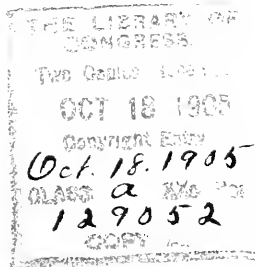 THE LIBRARY OF
CONGRESS
Two Copies
OCT 18 1905
Copyright Entry
Oct. 18. 1905
CLASS a XXc No.
129052
COPY